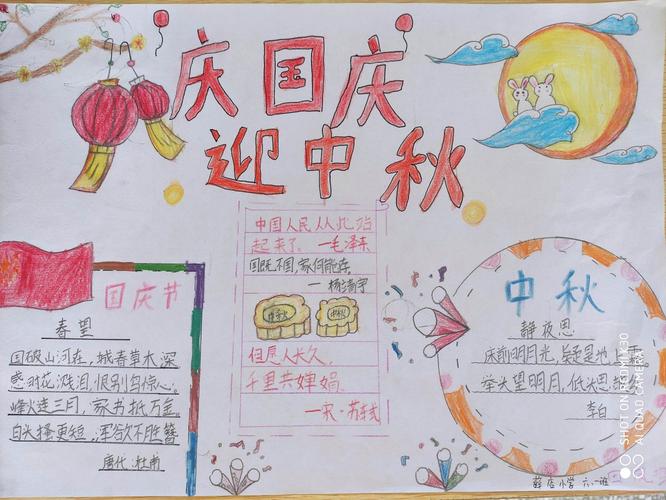 庆国庆
迎中秋
国庆节
春望
国破山河在，城春草木深
感时花溅泪，恨别鸟惊心，
烽火连三月，家书抵万金
白头搔更短，浑欲不胜簪
唐代：杜甫
中国人民从此站
起来了。—毛泽东
国既不国，家何能存
中秋
中秋
但愿人长久，
千里共婵娟。
—宋·苏轼
中秋
静夜思
床前明月光，疑是地上霜
举头望明月，低头思故乡
李白
薛店小学 六.一班
SHOT ON REDMI K30
AI QUAD CAMERA